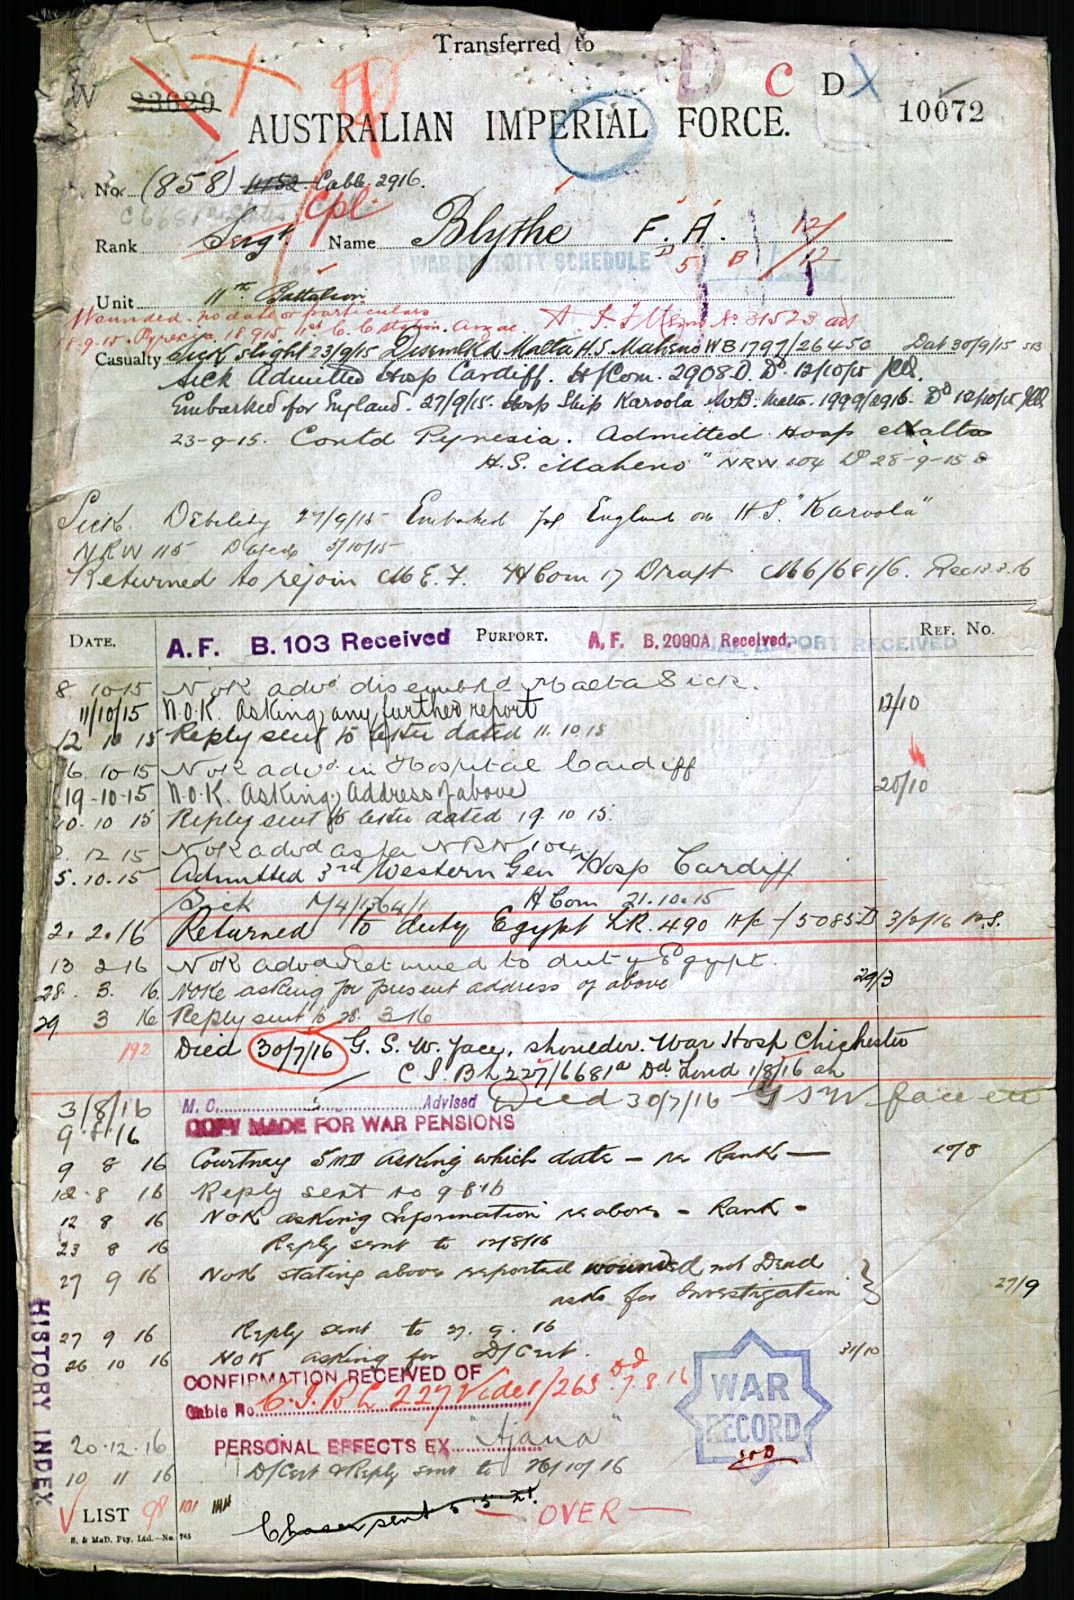 Transferred to
W 23629 C D X 10072
AUSTRALIAN IMPERIAL FORCE.
No. (858) 1152 Cabb. 2916.
Cpl.
Rank Sergt. Name Blythe F. A. 12/
WAR GRATUITY SCHEDULE 5 B 12
Unit 11th Battalion
Wounded. no date or particulars
18.9.15. Pyrexia 18 9 15 1st C. C. Station. Anzac
Casualty Sick slight 23/9/15 Disemb'kd Malta H.S. Maheno WB 1797/26450 Dat 30/9/15
Sick Admitted Hosp Cardiff. H/Com. 2908 D. Dd. 12/10/15
Embarked for England. 27/9/15. Hosp Ship Karoola Malta. 1999/2916. Dd 12/10/15
23-9-15. Contd Pyrexia. Admitted Hosp Malta
H.S. Maheno" NRW 104 Dd 28-9-15
Sick Debility 27/9/15 Embarked for England on H.S. "Karoola"
NRW 115 Dated 5/10/15
Returned to rejoin M.E.F. H Com 17 Draft M6/681/6. Rec
DATE. A.F. B.103 Received PURPORT. A.F. B.2090A Received. REPORT RECEIVED REF. NO.
8 10 15 NoK advd disembkd Malta Sick.
11/10/15 N.O.K. Asking any further report 12/10
12 10 15 Reply sent to letter dated 11.10.15
16. 10-15 NoK advd in Hospital Cardiff
19-10-15 N.O.K. Asking Address of above 20/10
20. 10 15 Reply sent to letter dated 19 10 15.
12 15 NoK advd as per NRW 104
5.10.15 Admitted 3rd Western Gen Hosp Cardiff
Sick H Com 21.10.15
2. 2.16 Returned to duty Egypt LR. 490 5085D 3/2/16
13 2 16 NoK advd Returned to duty Egypt.
28. 3. 16. NOK asking for present address of above 29/3
29 3 16 Reply sent to 28 3 16
192 Died 30/7/16 G. S. W. face, shoulder. War Hosp Chichester
C.I.B.L 227/6681a Dd. Lond 1/8/16
3/8/16 M.C. Advised Died 30/7/16 G S W face
9.8.16 COPY MADE FOR WAR PENSIONS
9 8 16 Courtney asking which date – re Rank – 10/8
12.8 16 Reply sent to 9 8 16
12 8 16 NOK asking Information re above - Rank -
23 8 16 Reply sent to 12/8/16
27 9 16 NoK stating above reported wounded not Dead
asks for Investigation 27/9
27 9 16 Reply sent to 27. 9. 16
26 10 16 NOK asking for D/Cert. 31/10
CONFIRMATION RECEIVED OF
Cable No. C.I.B.L 227 Vide 1/263 Dd 7.8.16
WAR
RECORD
20.12.16 PERSONAL EFFECTS EX "Ajana"
10 11 16 D/Cert & Reply sent to 26/10/16
HISTORY INDEX
LIST 98 101
sent 5.5.21. — OVER —